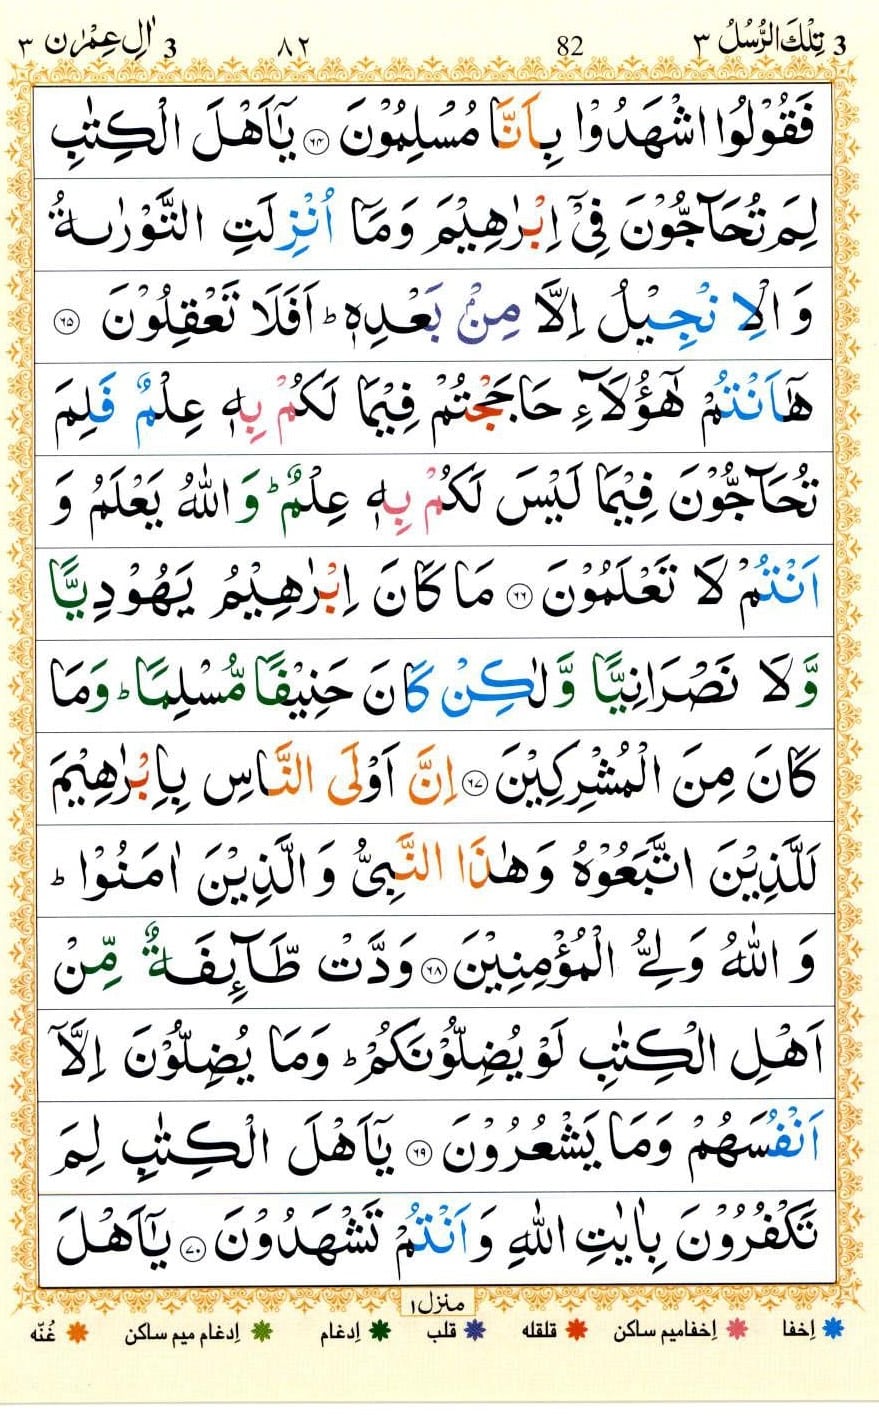 3 تِلْكَ الرُّسُلُ ٣ 82 ٨٢ 3 اٰلِ عِمْرٰن ٣
فَقُوْلُوا اشْهَدُوْا بِاَنَّا مُسْلِمُوْنَ ﴿٦٤﴾ يٰۤاَهْلَ الْكِتٰبِ
لِمَ تُحَآجُّوْنَ فِىْۤ اِبْرٰهِيْمَ وَمَاۤ اُنْزِلَتِ التَّوْرٰىةُ
وَالْاِنْجِيْلُ اِلَّا مِنْۢ بَعْدِهٖ ؕ اَفَلَا تَعْقِلُوْنَ ﴿٦٥﴾
هٰۤاَنْتُمْ هٰٓؤُلَآءِ حَاجَجْتُمْ فِيْمَا لَكُمْ بِهٖ عِلْمٌ فَلِمَ
تُحَآجُّوْنَ فِيْمَا لَيْسَ لَكُمْ بِهٖ عِلْمٌ ؕ وَاللّٰهُ يَعْلَمُ وَ
اَنْتُمْ لَا تَعْلَمُوْنَ ﴿٦٦﴾ مَا كَانَ اِبْرٰهِيْمُ يَهُوْدِيًّا
وَّلَا نَصْرَانِيًّا وَّلٰكِنْ كَانَ حَنِيْفًا مُّسْلِمًا ؕ وَمَا
كَانَ مِنَ الْمُشْرِكِيْنَ ﴿٦٧﴾ اِنَّ اَوْلَى النَّاسِ بِاِبْرٰهِيْمَ
لَلَّذِيْنَ اتَّبَعُوْهُ وَهٰذَا النَّبِىُّ وَالَّذِيْنَ اٰمَنُوْا ؕ
وَاللّٰهُ وَلِىُّ الْمُؤْمِنِيْنَ ﴿٦٨﴾ وَدَّتْ طَّآئِفَةٌ مِّنْ
اَهْلِ الْكِتٰبِ لَوْ يُضِلُّوْنَكُمْ ؕ وَمَا يُضِلُّوْنَ اِلَّاۤ
اَنْفُسَهُمْ وَمَا يَشْعُرُوْنَ ﴿٦٩﴾ يٰۤاَهْلَ الْكِتٰبِ لِمَ
تَكْفُرُوْنَ بِاٰيٰتِ اللّٰهِ وَاَنْتُمْ تَشْهَدُوْنَ ﴿٧٠﴾ يٰۤاَهْلَ
منزل ١
اِخفا اِخفامیم ساکن قلقله قلب اِدغام اِدغام میم ساکن غُنّه